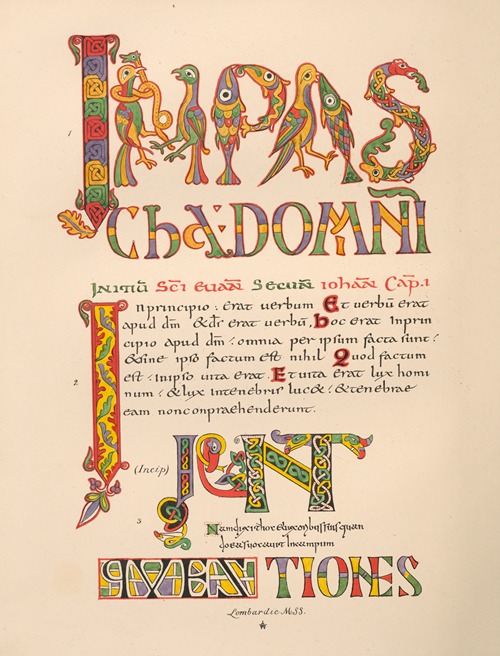 1
INPAS
ChA:DOMÑI
INITIŪ SC̄I EUAÑ SECUÑ IOHAÑ CAP̄.1
2
In principio : erat verbum Et verbū erat
apud dm̄ &ds̄ erat verbū, hoc erat Inprin
cipio apud dm̄ : omnia per ipsum facta sunt :
&sine ipso factum est nihil Quod factum
est : Inipso vita erat. Et uita erat lux homi
num : &lux intenebris luc& : &tenebrae
eam nonconpraehenderunt.
(Incip) IUNT
3
TIONES
Lombardic MSS.